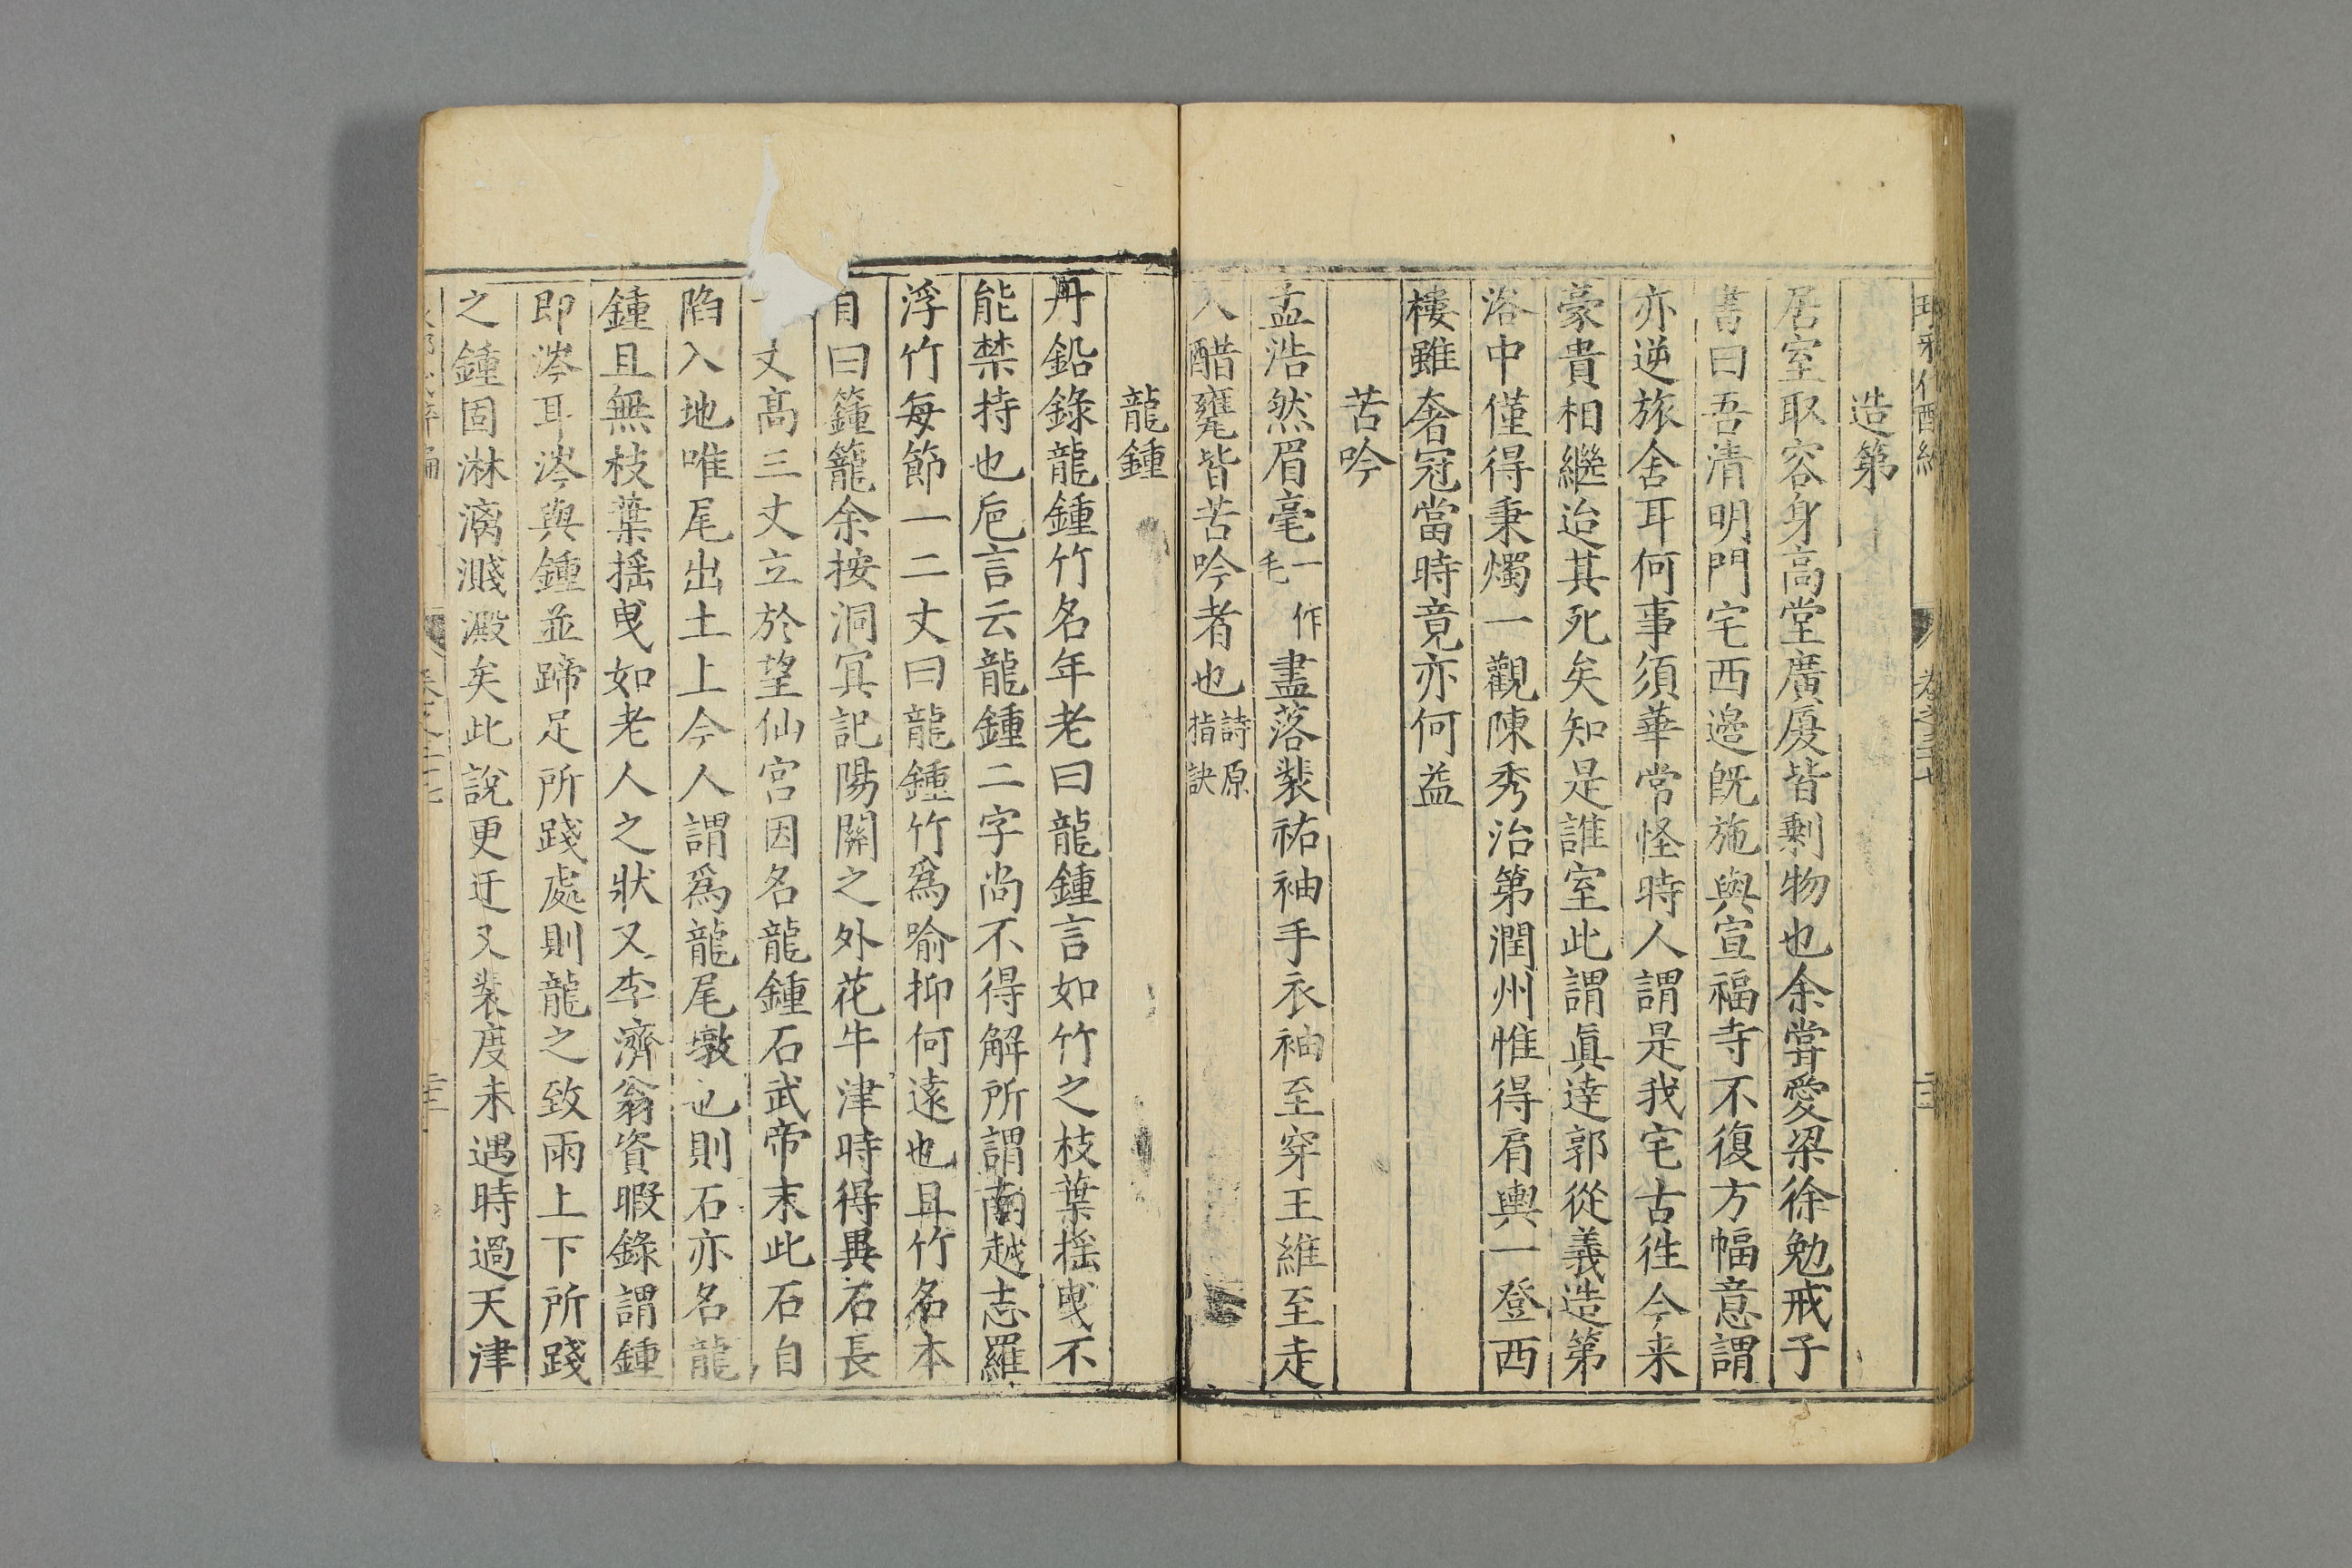 造第
居室取容身高堂廣厦皆剩物也余嘗愛梁徐勉戒子
書曰吾清明門宅西邉旣施與宣福寺不復方幅意謂
亦逆旅舍耳何事須華常怪時人謂是我宅古徃今来
豪貴相繼迨其死矣知是誰室此謂眞逹郭從義造第
洛中僅得秉燭一觀陳秀治第潤州惟得肩輿一登西
樓雖奢冠當時竟亦何益
苦吟
孟浩然眉毫一作毛盡落裴祐袖手衣袖至穿王維至走
入醋甕皆苦吟者也詩原指訣
龍鍾
丹鉛錄龍鍾竹名年老曰龍鍾言如竹之枝葉摇曳不
能禁持也巵言云龍鍾二字尚不得解所謂南越志羅
浮竹每節一二丈曰龍鍾竹爲喻抑何遠也且竹名本
自曰籦籠余按洞㝠記陽關之外花牛津時得異石長
丈髙三丈立於望仙宮因名龍鍾石武帝末此石自
陷入地唯尾出土上今人謂爲龍尾墩也則石亦名龍
鍾且無枝葉摇曳如老人之狀又李濟翁資暇錄謂鍾
即涔耳涔與鍾並蹄足所踐處則龍之致雨上下所踐
之鍾固淋漓濺澱矣此說更迂又裴度未遇時過天津